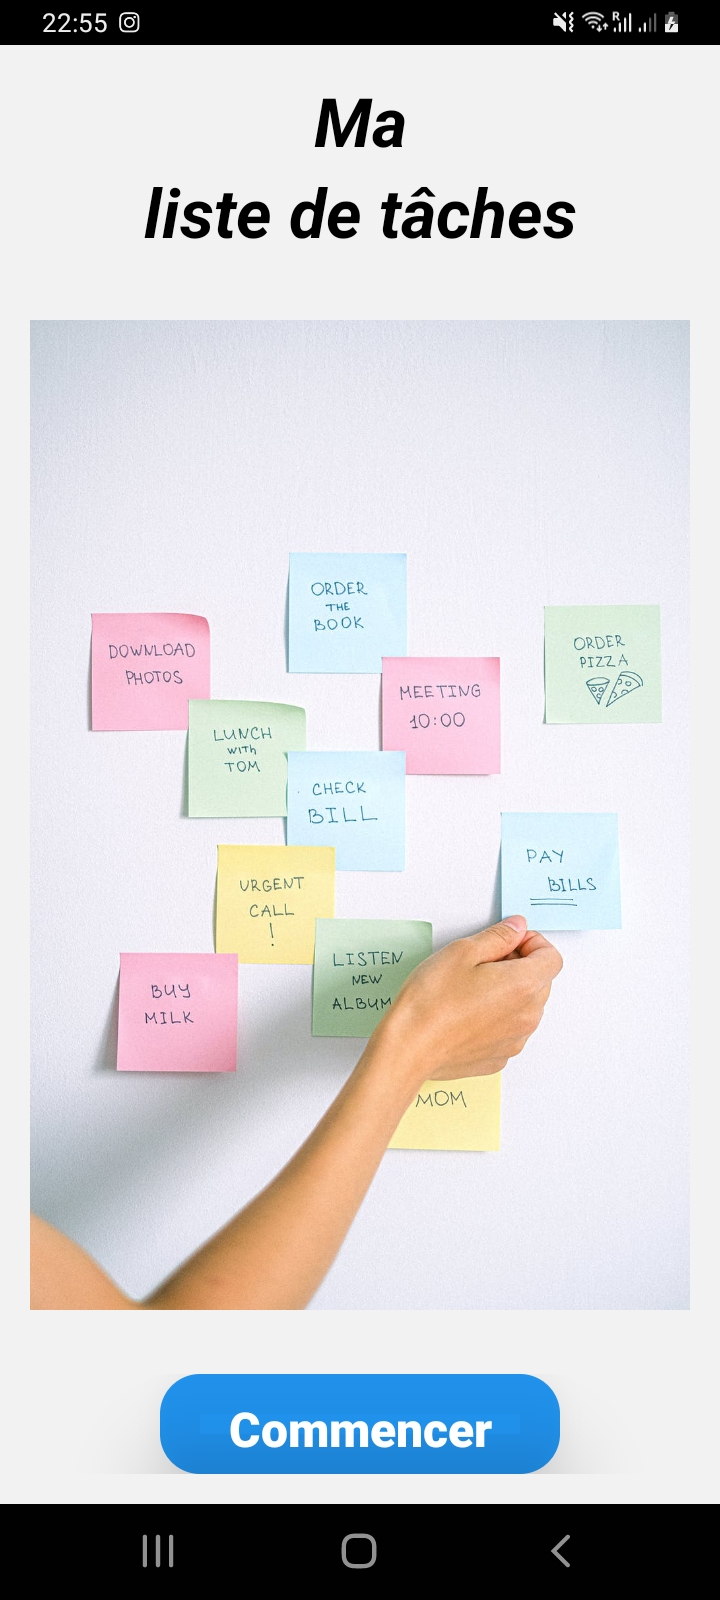 22:55
R
Ma
liste de tâches
ORDER
THE
BOOK
DOWNLOAD
PHOTOS
ORDER
PIZZA
MEETING
10:00
LUNCH
with
TOM
CHECK
BILL
PAY
BILLS
URGENT
CALL
!
LISTEN
NEW
ALBUM
BUY
MILK
MOM
Commencer